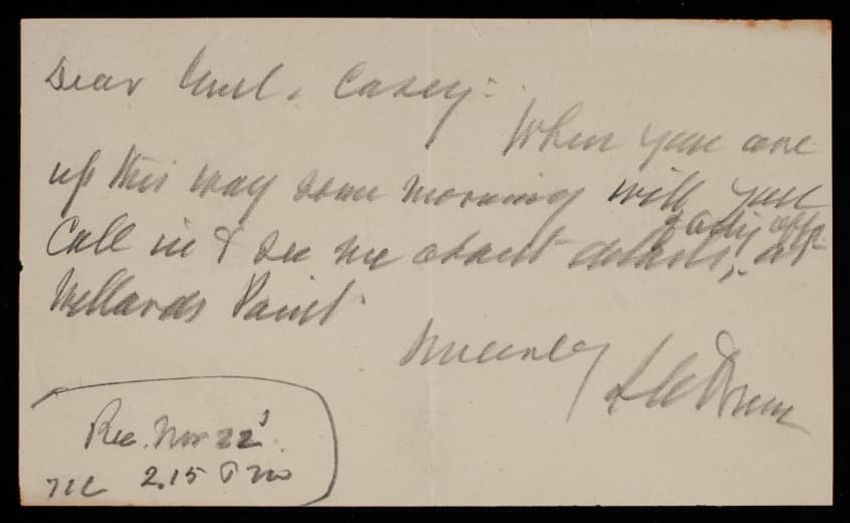 Dear Genl. Casey:
When you are
up this way some morning will you
Call in & see me about details, at
Willards Point.
Sincerely
Rec. Nov 22
2.15 P m